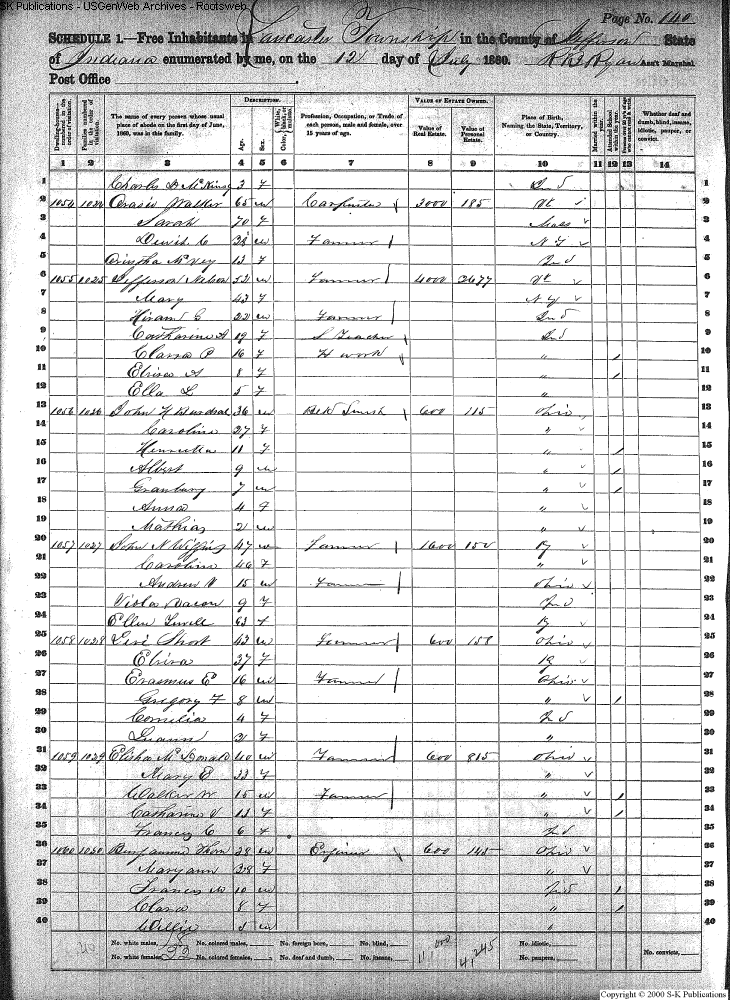 SK Publications - USGenWeb Archives - Rootsweb
Page No. 140
SCHEDULE 1.—Free Inhabitants in Lancaster Township in the County of Jefferson State
of Indiana enumerated by me, on the 12 day of July 1860. R B Ryan Ass't Marshal
Post Office
Dwelling-houses—numbered in the order of visitation.
Families numbered in the order of visitation.
The name of every person whose usual place of abode on the first day of June, 1860, was in this family.
DESCRIPTION.
Age.
Sex.
Color, White, black, or mulatto.
Profession, Occupation, or Trade of each person, male and female, over 15 years of age.
VALUE OF ESTATE OWNED.
Value of Real Estate.
Value of Personal Estate.
Place of Birth, Naming the State, Territory, or Country.
Married within the year.
Attended School within the year.
Whether deaf and dumb, blind, insane, idiotic, pauper, or convict.
1 2 3 4 5 6 7 8 9 10 11 12 13 14
1 Charles McKinsey 3 f Ind 1
2 1054 1024 Walker 65 m Carpenter 3000 185 Vt 2
3 Sarah 70 f Mass 3
4 Lewis C 38 m Farmer N Y 4
5 McVey 13 f Ind 5
6 1055 1025 Jefferson Nelson 52 m Farmer 4000 2677 Vt 6
7 Mary 43 f N Y 7
8 Hiram G 22 m Farmer Ind 8
9 Catharine A 19 f S Teacher Ind 9
10 Clara P 16 f H work " 10
11 A 8 f " 11
12 Ella L 5 f " 12
13 1056 1026 John H 36 m Blk Smith 600 115 Ohio 13
14 Caroline 27 f " 14
15 Henrietta 11 f " 15
16 Albert 9 m " 16
17 7 m " 17
18 Anna 4 f " 18
19 Mathias 2 m " 19
20 1057 1027 John N 47 m Farmer 1600 150 Ky 20
21 Caroline 46 f " 21
22 Andrew W 15 m Farmer Ohio 22
23 Viola Bacon 9 f Ind 23
24 Ellen 63 f Ky 24
25 1058 1028 Levi 43 m Farmer 600 158 Ohio 25
26 Elvira 37 f Ky 26
27 Erasmus E 16 m Farmer Ohio 27
28 Gregory F 8 m " 28
29 Cornelia 4 f Ind 29
30 Luann 2 f " 30
31 1059 1029 Elisha McDonald 40 m Farmer 600 815 Ohio 31
32 Mary E 33 f " 32
33 Walker W 15 m Farmer " 33
34 Catharine V 13 f " 34
35 Francis C 6 f Ind 35
36 1060 1030 Benjamin Thorn 38 m Engineer 600 145 Ohio 36
37 Maryann 38 f " 37
38 Francis M 10 m Ind 38
39 Clara 8 f " 39
40 Willie 5 m " 40
No. white males, 18 No. colored males, No. foreign born, No. blind, 11,000 4,245 No. idiotic,
No. white females, 22 No. colored females, No. deaf and dumb, No. insane, No. paupers, No. convicts,
Copyright © 2000 S-K Publications